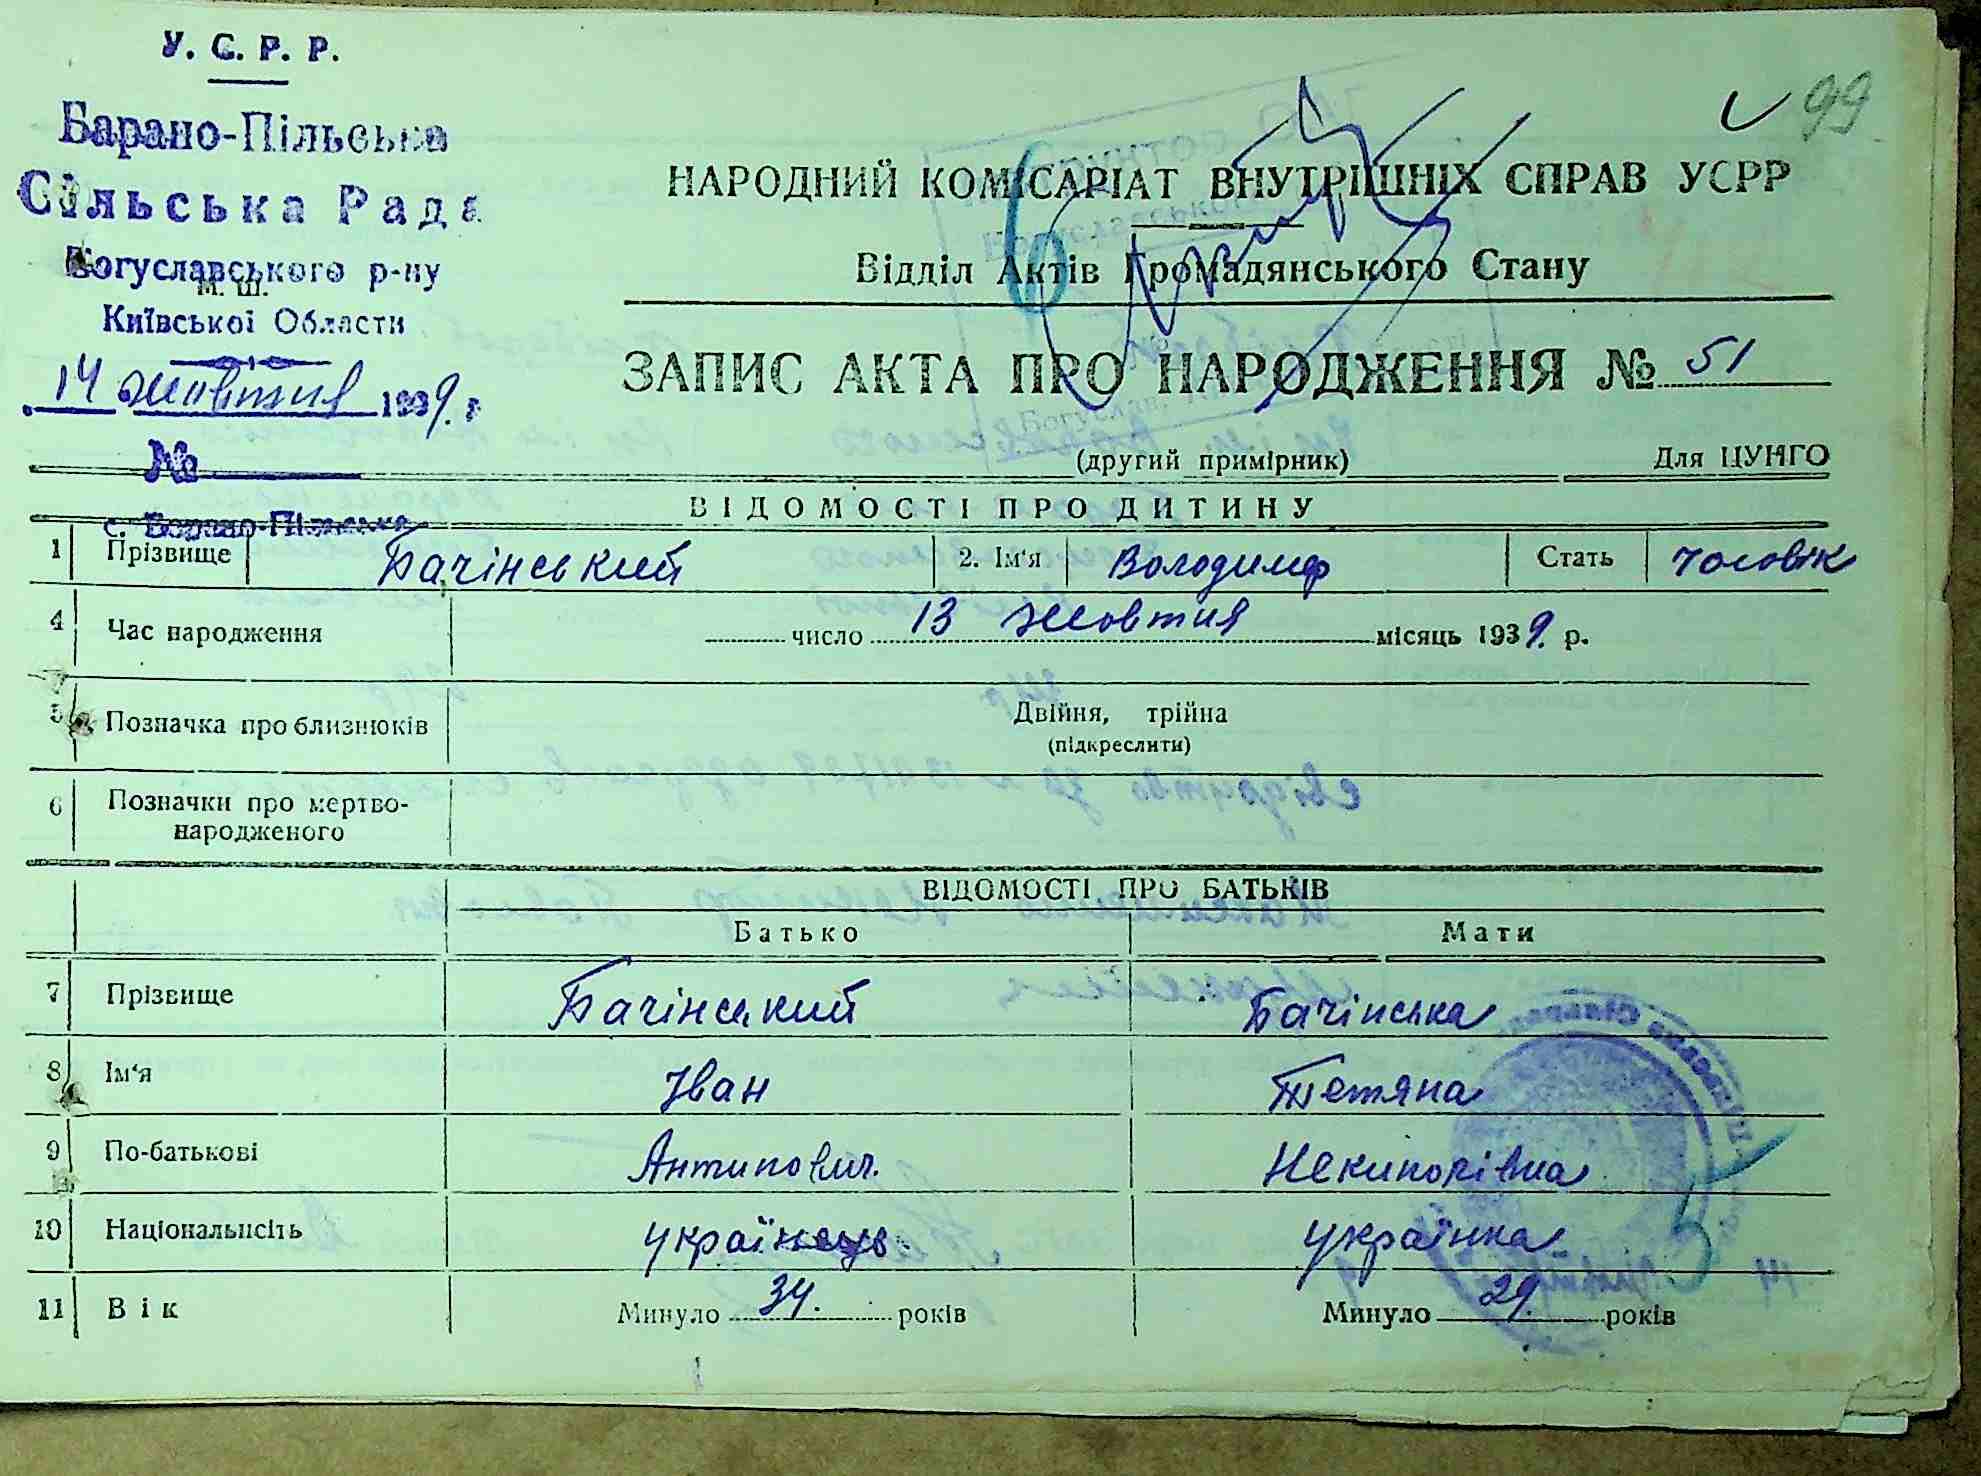 У. С. Р. Р.
Барано-Пільська
Сільська Рада
Богуславського р-ну
М. Ш.
Київської Области
14 жовтня 1939 г.
№
с. Барано-Пільська
99
НАРОДНИЙ КОМІСАРІАТ ВНУТРІШНІХ СПРАВ УСРР
Відділ Актів Громадянського Стану
6
ЗАПИС АКТА ПРО НАРОДЖЕННЯ № 51
(другий примірник) Для ЦУНГО
ВІДОМОСТІ ПРО ДИТИНУ
1 Прізвище Бачінський 2. Ім'я Володимір Стать чоловік
4 Час народження число 13 жовтня місяць 1939. р.
5 Позначка про близнюків Двійня, трійна
(підкреслити)
6 Позначки про мертво-
народженого
ВІДОМОСТІ ПРО БАТЬКІВ
Батько Мати
7 Прізвище Бачінський Бачінська
8 Ім'я Іван Тетяна
9 По-батькові Антипович. Некипорівна
10 Національність українець. українка
11 Вік Минуло 34. років Минуло 29. років